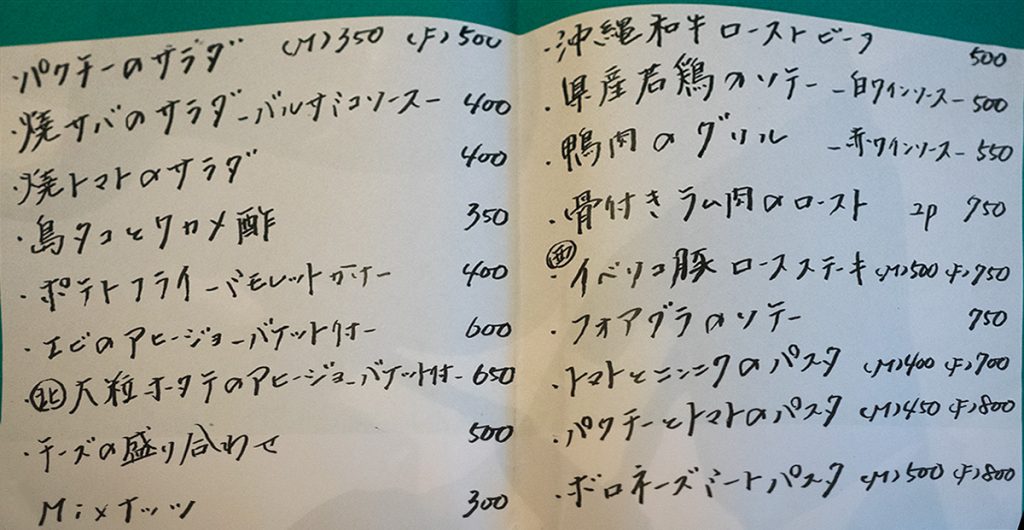 ・パクチーのサラダ (M)350 (F)500
・焼サバのサラダ-バルサミコソース- 400
・焼トマトのサラダ 400
・島タコとワカメ酢 350
・ポテトフライ-ミモレットがけ- 400
・エビのアヒージョ-バゲット付- 600
・大粒ホタテのアヒージョ-バゲット付- 650
・チーズの盛り合わせ 500
Mixナッツ 300
・沖縄和牛ローストビーフ 500
・県産若鶏のソテー -白ワインソース- 500
・鴨肉のグリル -赤ワインソース- 550
・骨付きラム肉のロースト 2p 750
・イベリコ豚ロースステーキ (M)500 (F)750
・フォアグラのソテー 750
・トマトとニンニクのパスタ (M)400 (F)700
・パクチーとトマトのパスタ (M)450 (F)800
・ボロネーズミートパスタ (M)500 (F)800